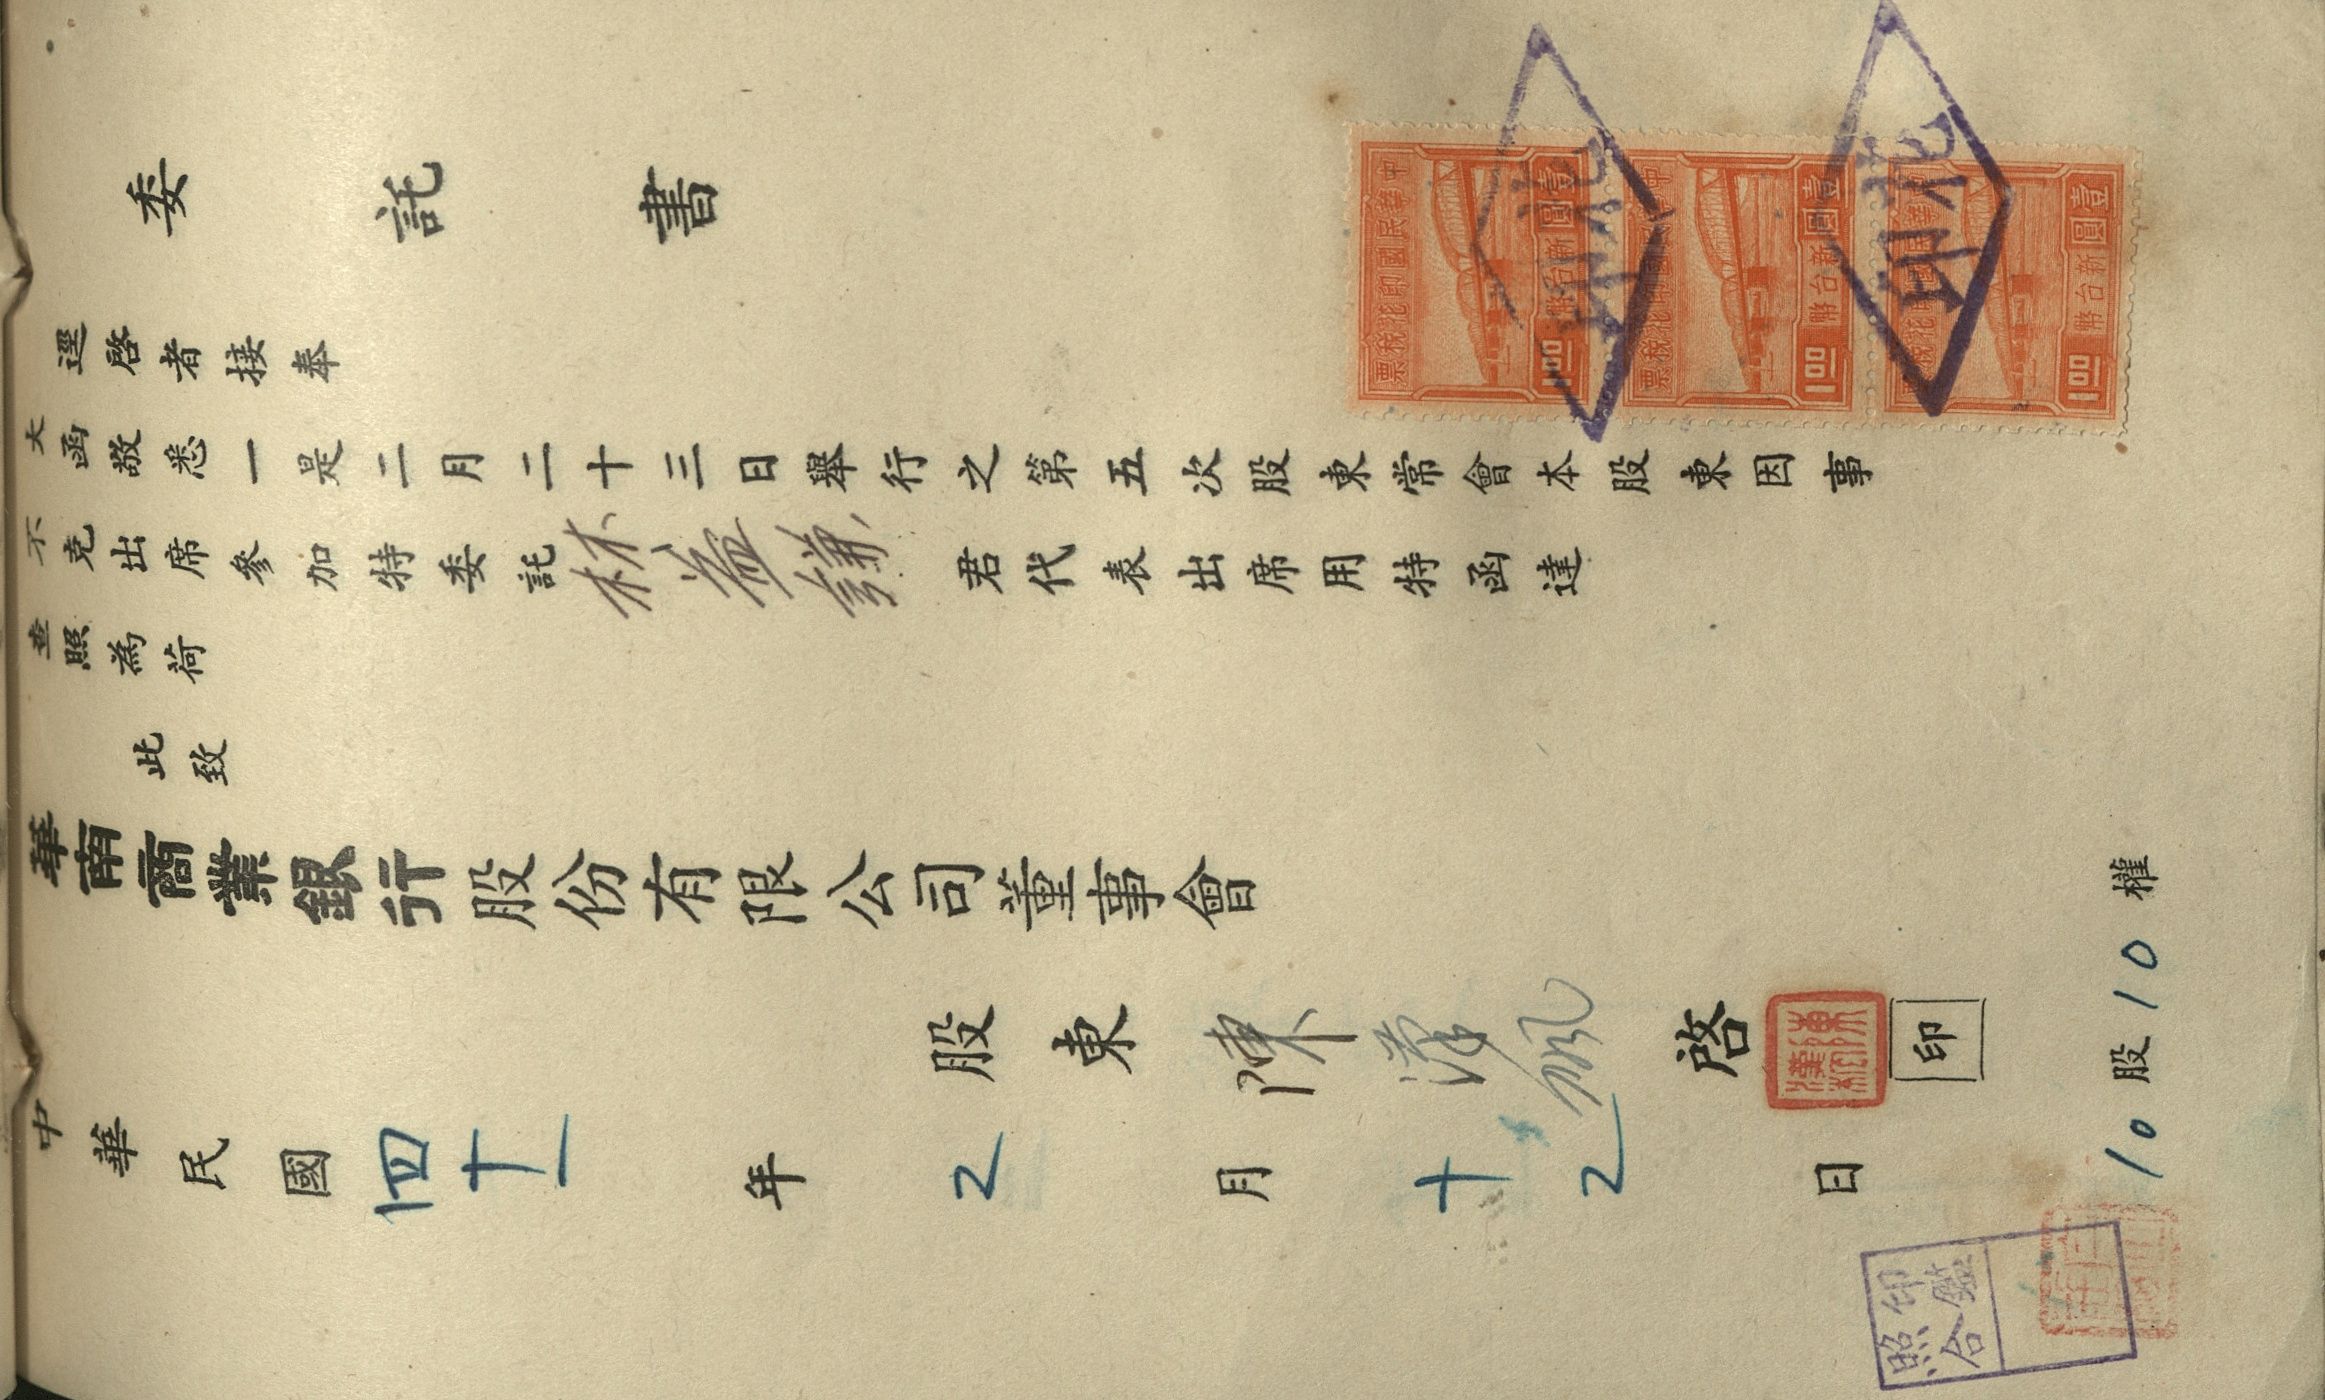 委託書
逕啓者接奉
大函敬悉一是二月二十三日舉行之第五次股東常會本股東因事
不克出席參加特委託林益謙君代表出席用特函達
查照為荷
此致
華南商業銀行股份有限公司董事會
股東陳漢 啓
印
中華民國四十一年2月十2日
10股10權
中華民國印花稅票
壹圓
新台幣
1.00
中華民國印花稅票
壹圓
新台幣
1.00
中華民國印花稅票
壹圓
新台幣
1.00
印花
印花
印鑑
照合